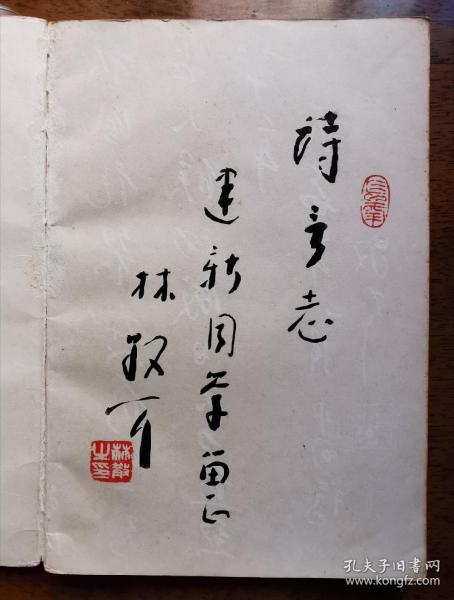 诗言志
建新同学留正
林散耳
林散之印
孔夫子旧书网
www.kongfz.com